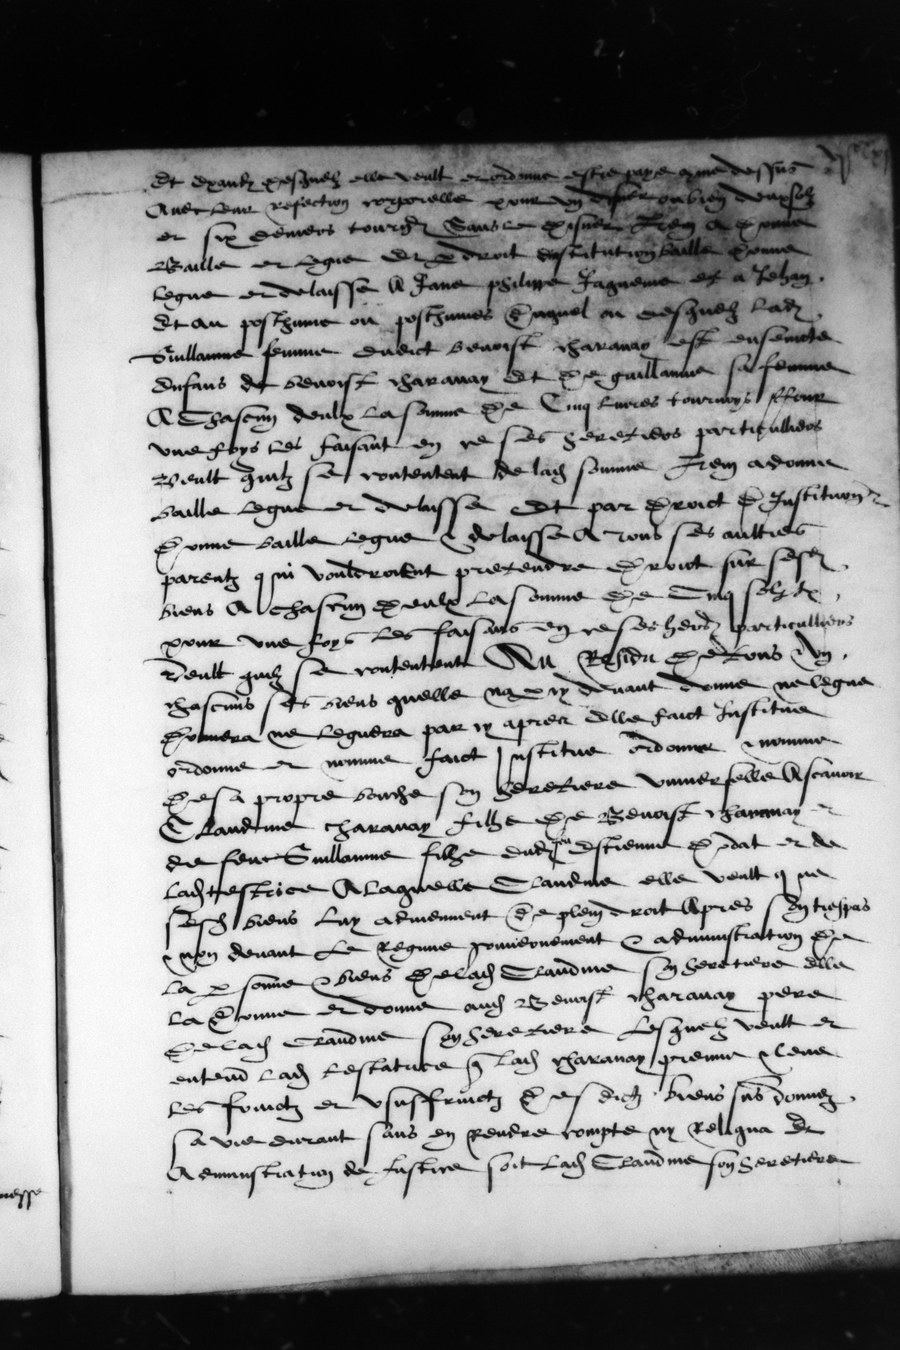 Et exautz desquelz elle veult et ordonne estre paye come dessus
Avec leur refection corporelle pour un disner ou bien deux solz
et six deniers tourn Sans le disner Item a donne
Baille et legue Et p droit dinstitution baille donne
legue et delaisse A Jane philippe Jaqueme et a Jehan
Et au posthume ou posthumes duquel ou desquelz lad
Guillaume femme dudict benoist charanay est ensaincte
Enfans de benoist charanay Et de guillaume sa femme
A Chascun deulx la somme de Cinq livres tournoys pour
une foys les faisant en ce ses heretiers particulliers
Veult quilz se contentent de lad somme Item a donne
baille legue et delaisse Et par droict dInstitution
donne baille legue & delaisse A tous ses aultres
parentz qui vouldroient pretendre droict sur sesd
biens A chascun deulx la somme de Cinq solz tz
pour une foys les faisans en ce ses hers particulliers
Veult quilz se contentent Au Residu de tous & un
chascuns ses biens quelle na p cy devant donne ne legue
donnera ne leguera par cy apres Elle faict Institue
ordonne et nomme faict Institue ordonne & nomme
de sa propre bouche son heretiere universelle Ascavoir
Claudine charanay filhe de Benoist charanay &
de feue Guillaume filhe dud feu Estienne et de
lad testrice A laquelle Claudine elle veult que
sesd biens luy adviennent de plein droit Apres son trespas
& non devant Le Regime gouvernement & administration de
la p sonne & biens de lad Claudine son heretiere elle
la donne et donne aud Benoist charanay pere
de lad Claudine son heretiere Lesquelz veult et
entend lad testatrice q led charanay prenne & leve
les fruictz et usufruictz de sesdictz biens sus donnez
sa vie durant sans en Rendre compte ny Reliqua Et
Administration de Justice soit lad Claudine son heretiere